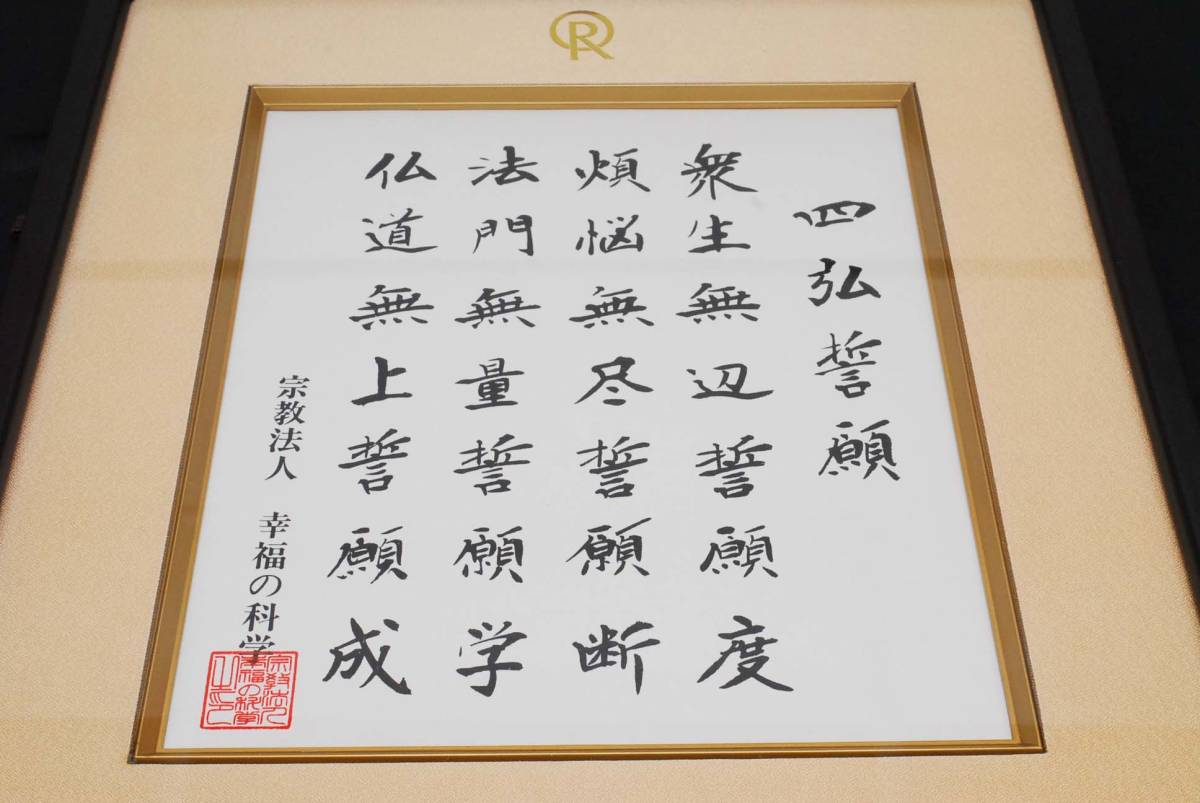 四弘誓願
衆生無辺誓願度
煩悩無尽誓願断
法門無量誓願学
仏道無上誓願成
宗教法人 幸福の科学
宗教法人
幸福の科学
之印